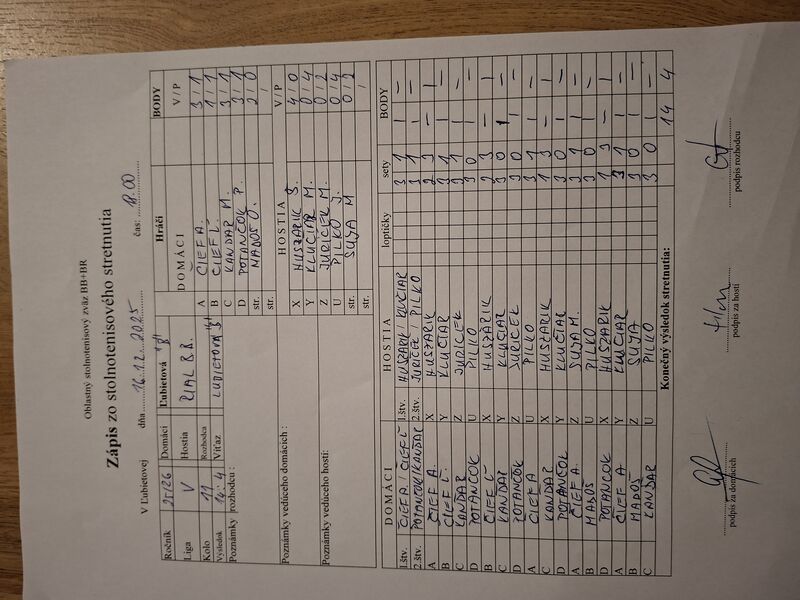 Oblastný stolnotenisový zväz BB+BR
Zápis zo stolnotenisového stretnutia
V Ľubietovej dňa 16.12.2025 čas: 18.00
Ročník 25/26 Domáci Ľubietová "B"
Liga V Hostia RIAL BB.
Kolo 11 Rozhodca
Výsledok 14:4 Víťaz ĽUBIETOVÁ "B"
Poznámky rozhodcu :
Poznámky vedúceho domácich :
Poznámky vedúceho hostí:
Hráči BODY
DOMÁCI V / P
A ČIEF A. 3/1
B ČIEF Ľ. 1/1
C KANDAR M. 3/1
D POTANČOK P. 3/1
str. MAĎOŠ O. 2/0
str. /
HOSTIA V / P
X HUSZARIK Š. 4/0
Y KLUČIAR M. 0/4
Z JURICEK M. 0/2
U PILKO J. 0/4
str. SUJA M 0/2
str. /
DOMÁCI HOSTIA loptičky sety BODY
1.štv. ČIEF A / ČIEF Ľ 1.štv. HUSZARIK / KLUČIAR 3 1 1 –
2.štv. POTANČOK/KANDAR 2.štv. JURIČEK / PILKO 3 1 1 –
A ČIEF A. X HUSZARIK 2 3 – 1
B ČIEF Ľ. Y KLUČIAR 3 1 1 –
C KANDAR Z JURICEK 3 1 1 –
D POTANČOK U PILKO 3 0 1 –
B ČIEF Ľ X HUSZARIK 2 3 – 1
C KANDAR Y KLUČIAR 3 0 1 –
D POTANČOK Z JURICEK 3 0 1 –
A ČIEF A U PILKO 3 1 1 –
C KANDAR X HUSZARIK 1 3 – 1
D POTANČOK Y KLUČIAR 3 0 1 –
A ČIEF A. Z SUJA M. 3 1 1 –
B MAĎOŠ U PILKO 3 0 1 –
D POTANČOK X HUSZARIK 1 3 – 1
A ČIEF A Y KLUČIAR 3 1 1 –
B MAĎOŠ Z SUJA 3 0 1 –
C KANDAR U PILKO 3 0 1 –
Konečný výsledok stretnutia: 14 4
podpis za domácich podpis za hostí podpis rozhodcu